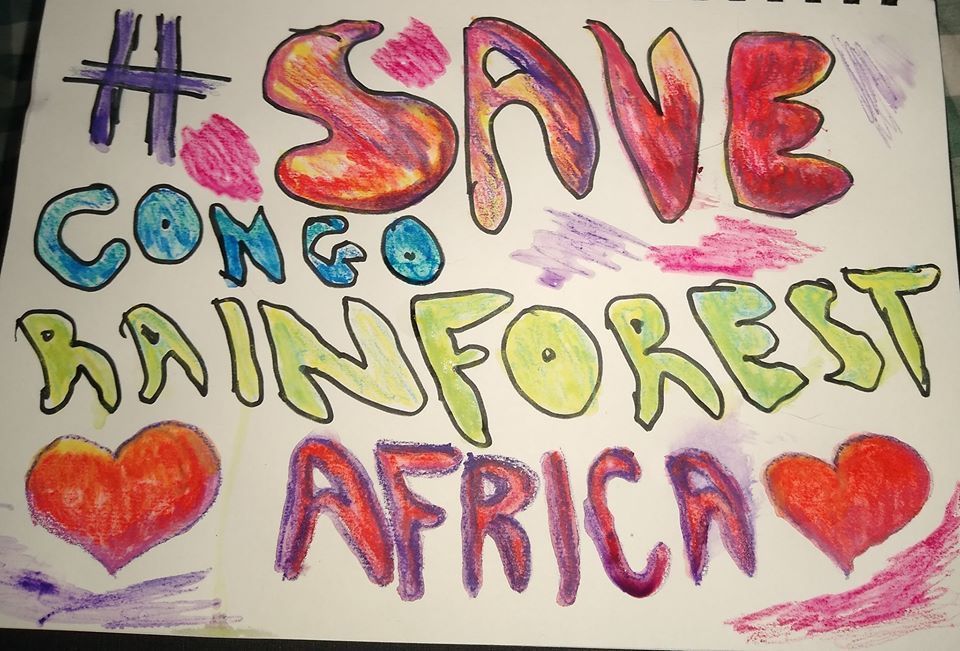 #SAVE
CONGO
RAINFOREST
AFRICA